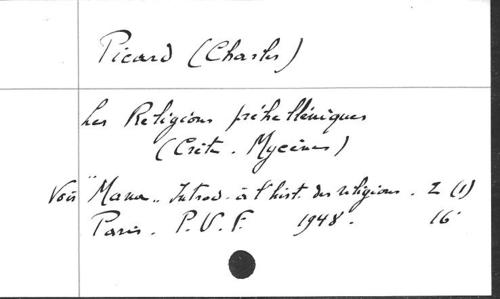 Picard (Charles)
Les Religions préhelléniques
(Crète. Mycènes)
Voir "Mana". Introd. à l'hist. des religions. 2 (1)
Paris. P.U.F. 1948. 16°